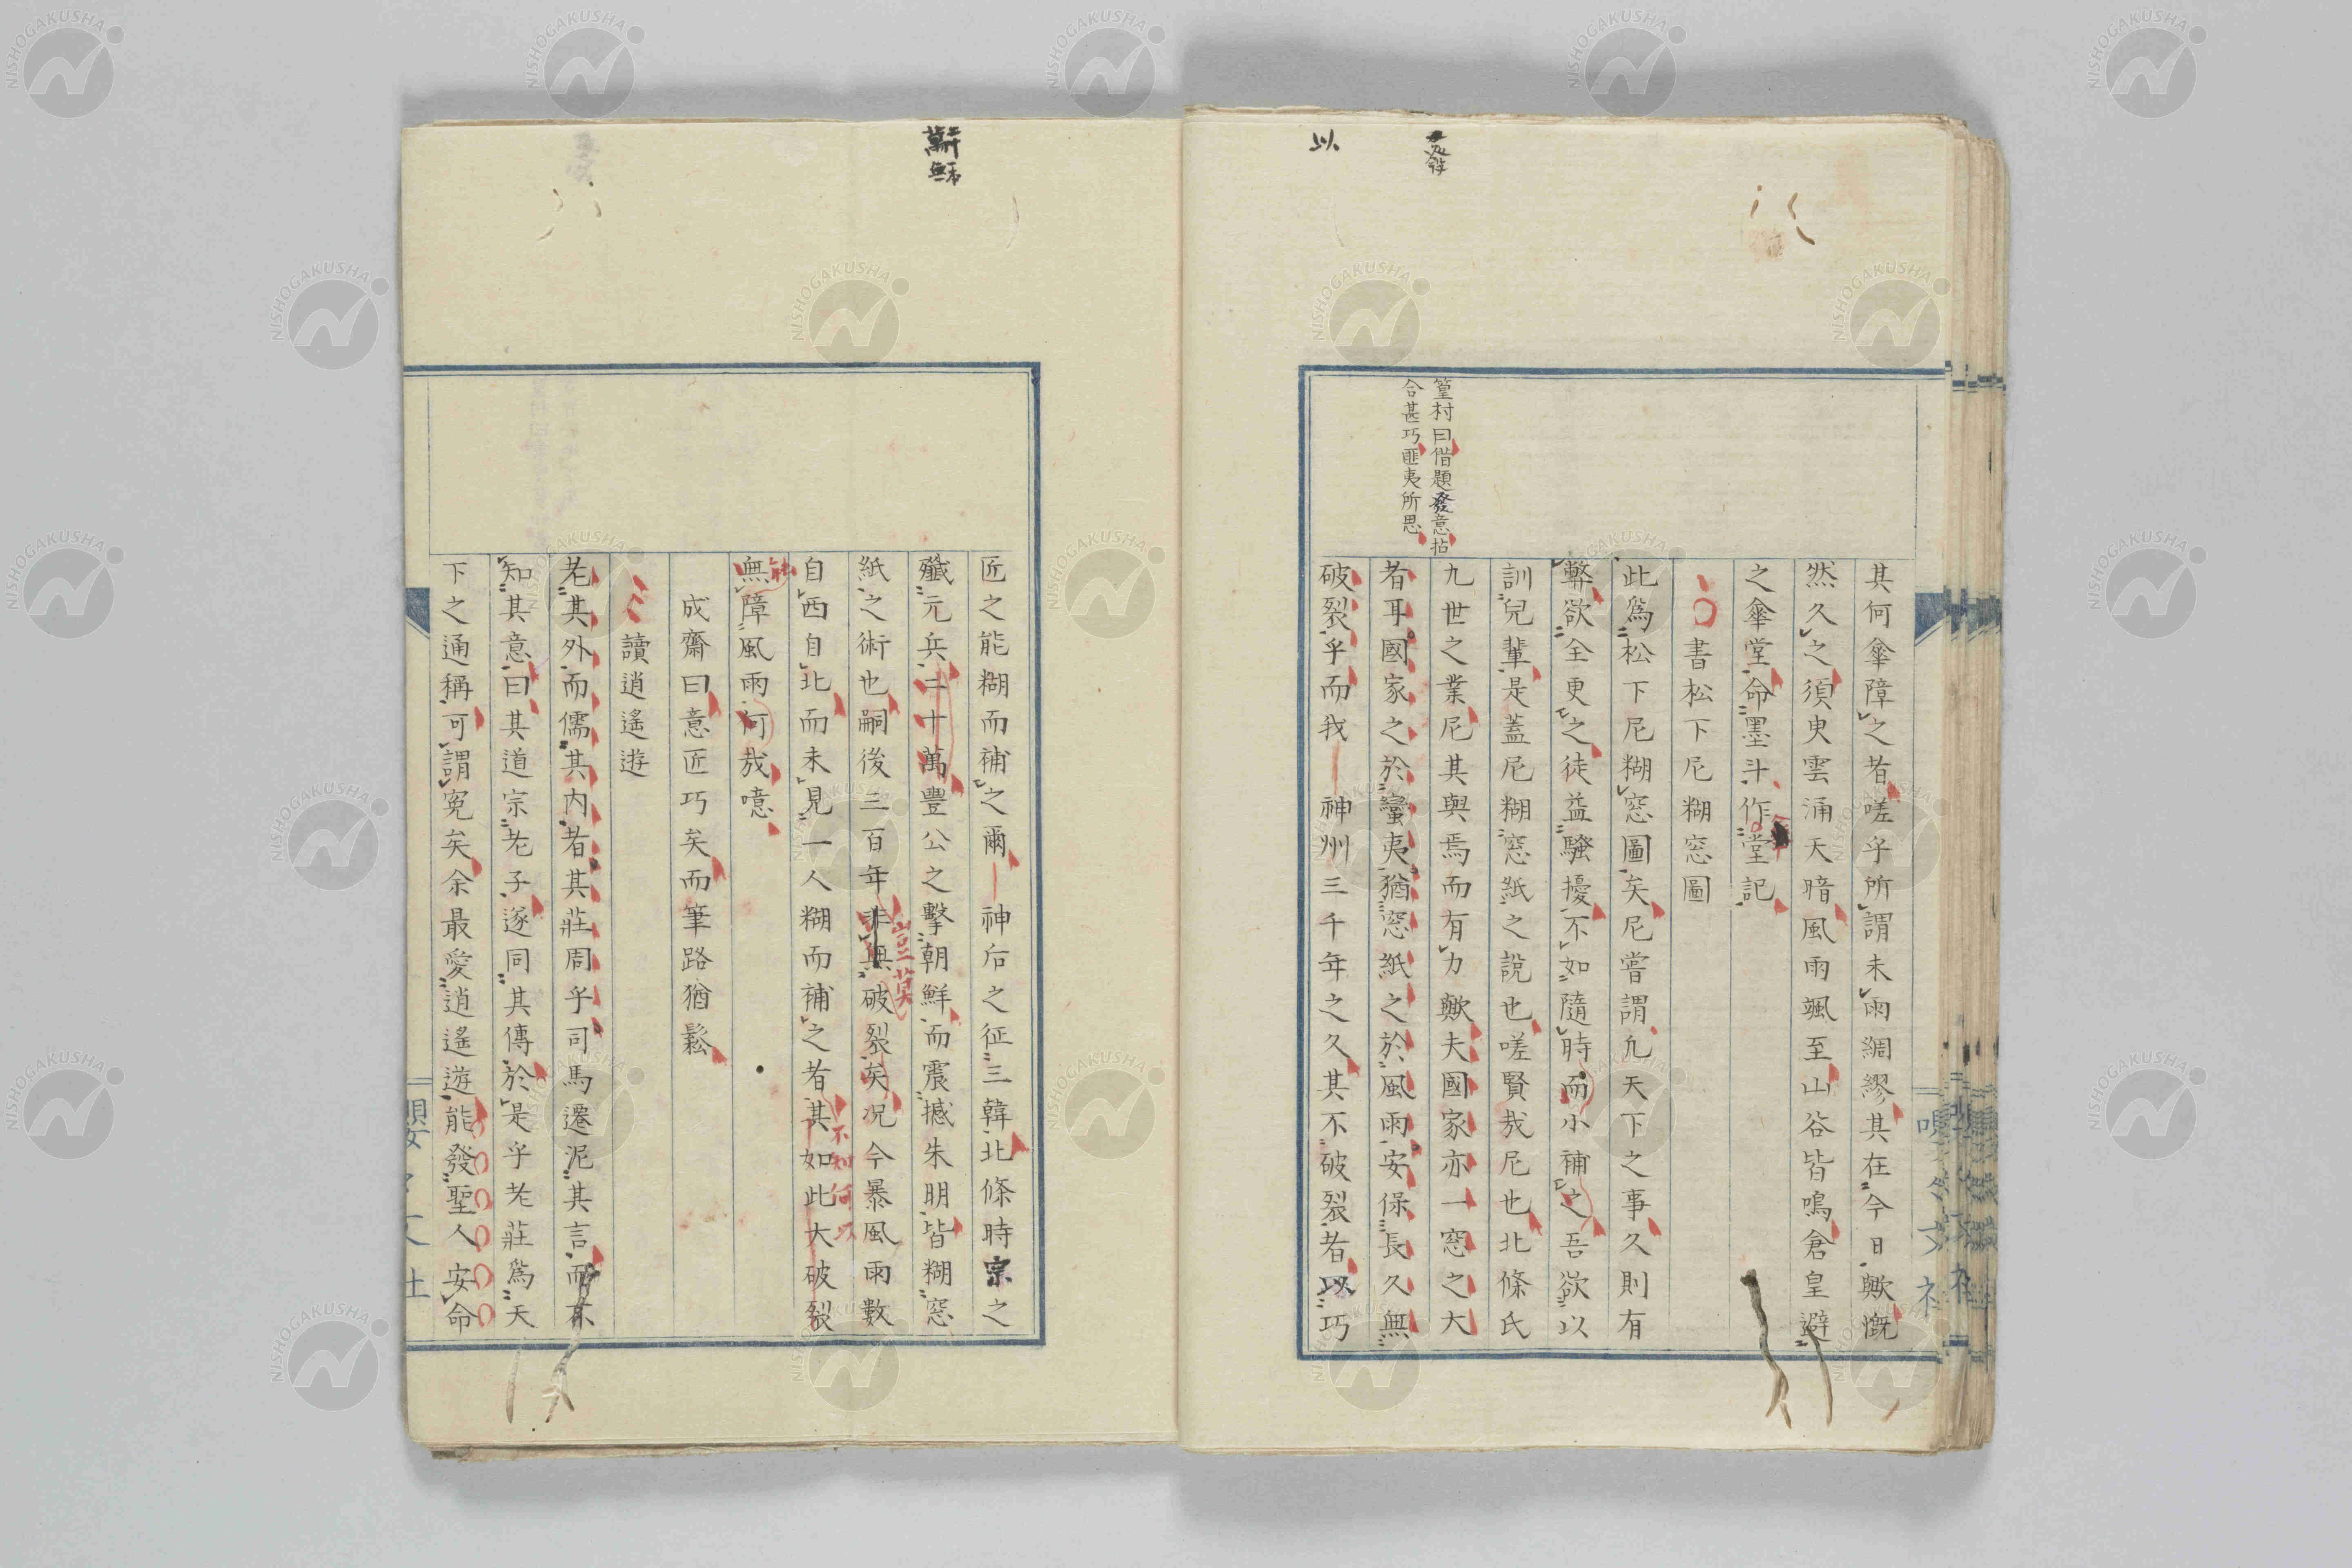 其何傘障之者嗟乎所謂未雨綢繆其在今日歟慨
然久之須臾雲涌天暗風雨颯至山谷皆鳴倉皇避
之傘堂命墨斗作堂記
書松下尼糊窓圖
此爲松下尼糊窓圖矣尼嘗謂凢天下之事久則有
弊欲全更之徒益騷擾不如隨時而小補之吾欲以
訓兒輩是蓋尼糊窓紙之說也嗟賢哉尼也北條氏
九世之業尼其與焉而有力歟夫國家亦一窓之大
者耳國家之於蠻夷猶窓紙之於風雨安保長久無
破裂乎而我 神州三千年之久其不破裂者以巧
篁村曰借題發意拈
合甚巧匪夷所思
以
匠之能糊而補之爾 神后之征三韓北條時宗之
殲元兵二十萬豐公之擊朝鮮而震撼朱明皆糊窓
紙之術也嗣後三百年非無破裂矣况今暴風雨數
豈莫
自西自北而未見一人糊而補之者其如此大破裂
不知何以
無障風雨何哉噫
成齋曰意匠巧矣而筆路猶鬆
讀逍遙遊
老其外而儒其内者其莊周乎司馬遷泥其言而不
知其意曰其道宗老子遂同其傳於是乎老莊爲天
下之通稱可謂冤矣余最愛逍遙遊能發聖人安命
NISHOGAKUSHA